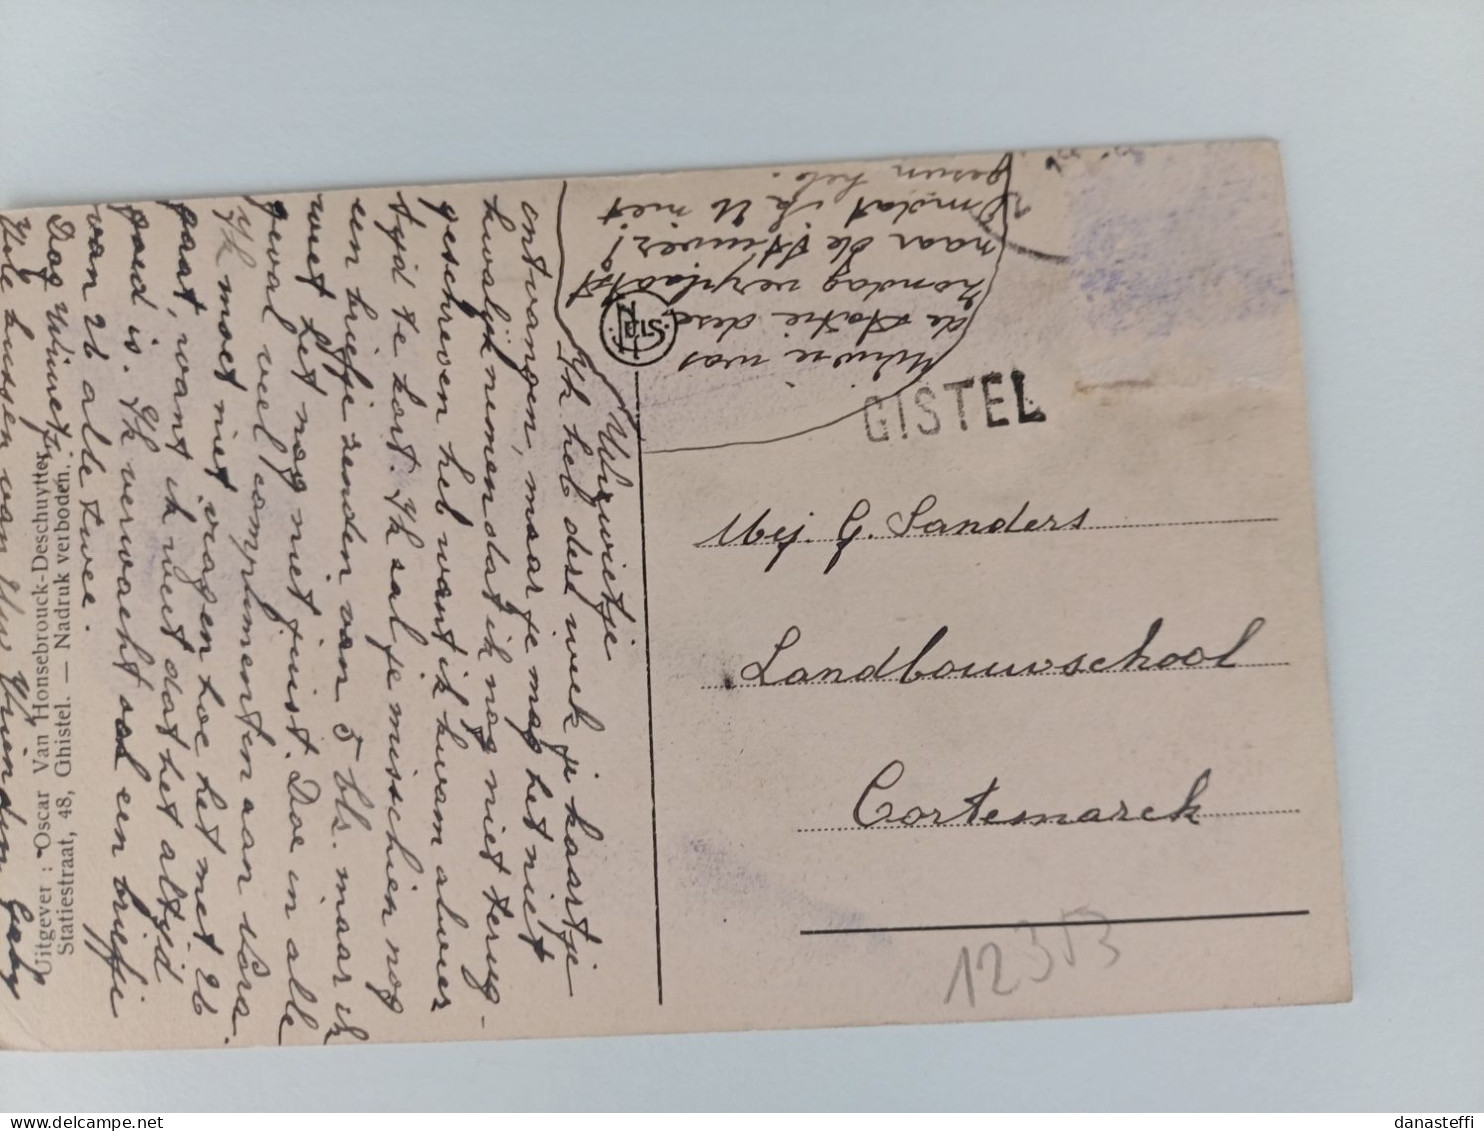 Wiwietje
Ik heb dese week je kaartje
ontvangen, maar je mag het niet
kwalijk nemen dat ik nog niet terug-
geschreven heb want ik kwam alweer
tijd te kort. Ik sal je misschien nog
een briefje senden van 5 bls. maar ik
weet het nog niet juist. Doe in alle
geval veel complimenten aan Cora.
Ik moet niet vragen hoe het met U
gaat, want ik weet dat het altijd
goed is. Ik verwacht een briefje
van U alle twee.
Dag Wiwietje
Vele kussen van Uw Vriendin Gaby
Uitgever : Oscar Van Housebrouck-Deschuytter
Statiestraat, 48, Ghistel. — Nadruk verboden.
was
de Statie dese
Zondag verplaatst
naar de
Omdat ik U niet
gesien heb.
GISTEL
Mej. G. Sanders
Landbouwschool
Cortemarck
12353
danasteffi